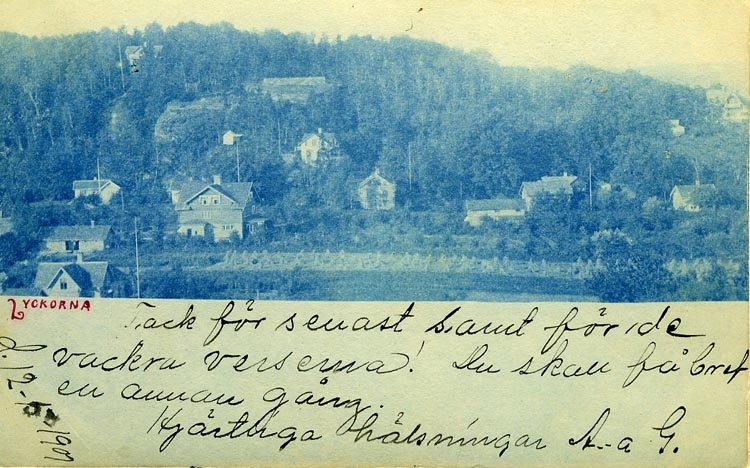 LYCKORNA
Tack för senast samt för de
vackra verserna! Du skall få bref
en annan gång.
Hjärtliga hälsningar A-a G.